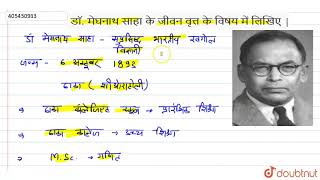 405450963
डॉ. मेघनाथ साहा के जीवन वृत्त के विषय में लिखिए |
डॉ मेघनाथ साहा - सुप्रसिद्ध भारतीय खगोल
विज्ञानी
जन्म - 6 अक्टूबर 1893
ढाका ( शाओराटोली )
→ ढाका कॉलेजिएट स्कूल → प्रारंभिक शिक्षा
→ ढाका कालेज → उच्च शिक्षा
→ M.Sc. → गणित
doubtnut